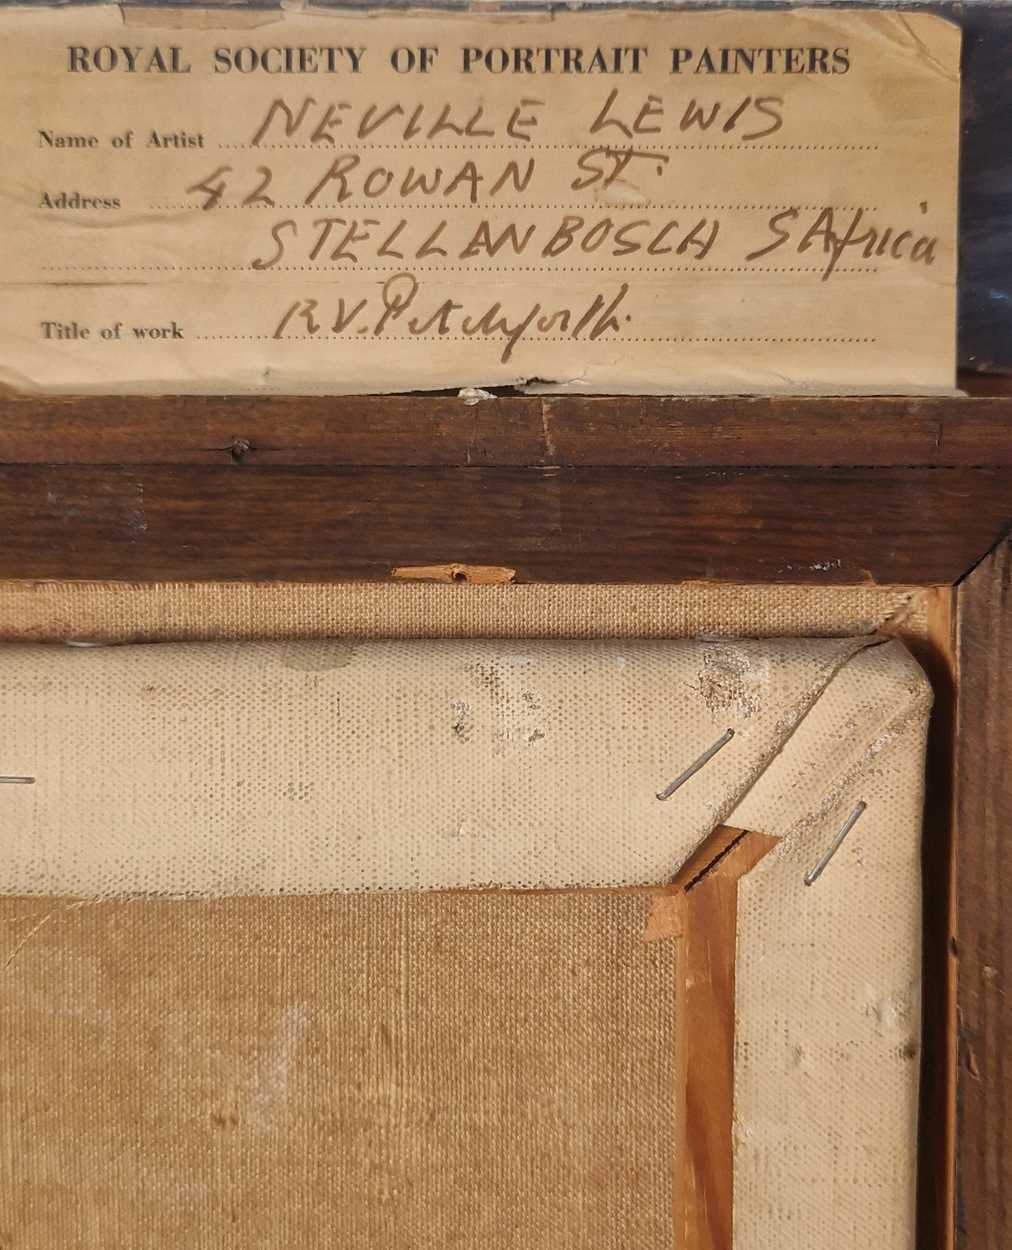 ROYAL SOCIETY OF PORTRAIT PAINTERS
Name of Artist NEVILLE LEWIS
Address 42 ROWAN ST.
STELLANBOSCH SAfrica
Title of work R V. Pitchforth.